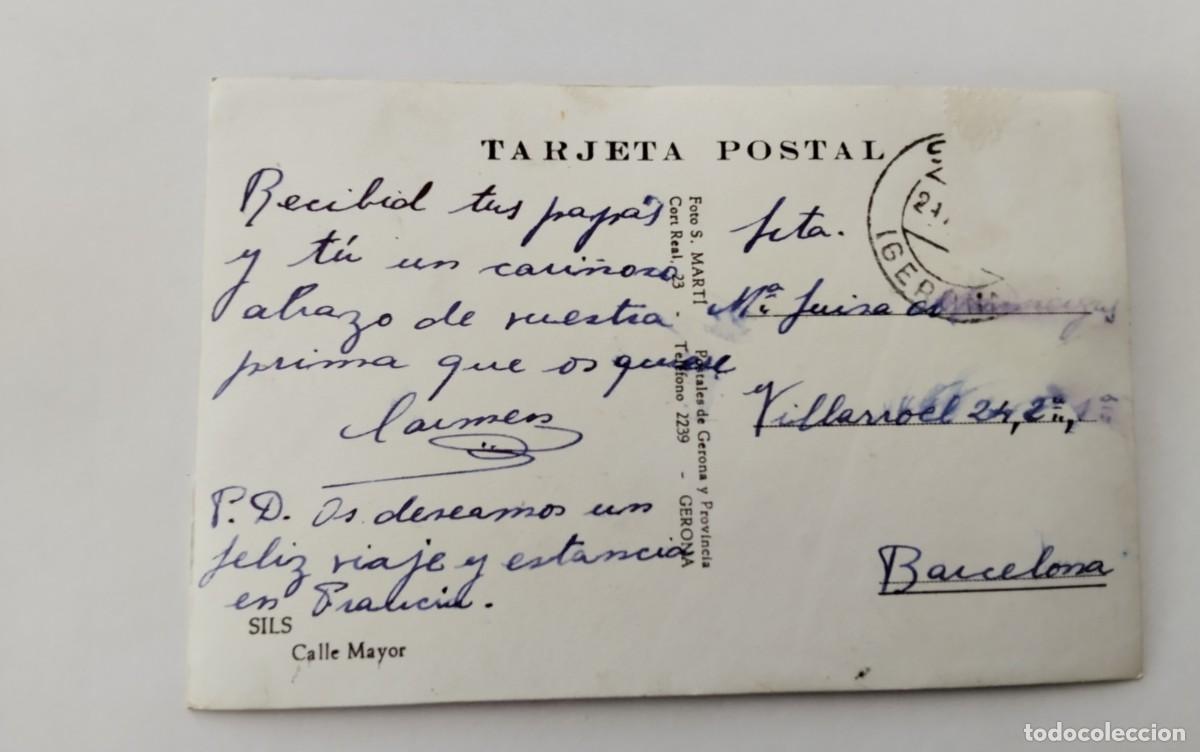 TARJETA POSTAL
Recibid tus papás
y tú un cariñoso
abrazo de vuestra
prima que os quiere
Carmen
P.D. Os deseamos un
feliz viaje y estancia
en Francia.
SILS
Calle Mayor
Foto S. MARTÍ Postales de Gerona y Provincia
Cort Real, 23 - Teléfono 2239 - GERONA
Srta.
Mª Luisa
Villarroel 24, 2º,
Barcelona
todocoleccion